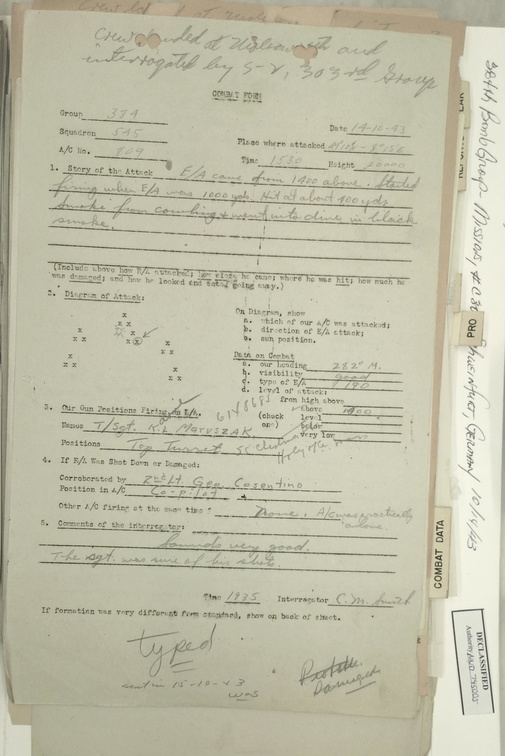 Crew landed at Molesworth and
interrogated by S-2, 303rd Group
COMBAT FORM
Group 379
Squadron 545
A/C No. 709
Date 14-10-43
Place where attacked
Time 1530 Height 20000
1. Story of the Attack E/A came from 1400 above. Started
firing when E/A was 1000 yds. Hit at about 400 yds
smoke from cowling & went into dive in black
smoke.
(Include above how E/A attacked; how close he came; where he was hit; how much he
was damaged; and how he looked and acted going away.)
2. Diagram of Attack:
On Diagram, show
a. which of our A/C was attacked;
b. direction of E/A attack;
c. sun position.
Data on Combat
a. our heading 282° M.
b. visibility good
c. type of E/A
d. level of attack:
from high above
(check above
one) level
below
very low
3. Our Gun Positions Firing on E/A.
Names T/Sgt. K.L. Maruszak
Positions Top Turret
4. If E/A Was Shot Down or Damaged:
Corroborated by 2nd Lt. Geo. Cosentino
Position in A/C Co-pilot
Other A/C firing at the same time? None. A/C was practically
alone.
5. Comments of the interrogator:
Sounds very good.
The sgt. was sure of his shots.
Time 1935 Interrogator C.M. Smith
If formation was very different from standard, show on back of sheet.
typed
sent in 15-10-43
Probable
Damaged
PRO
COMBAT DATA
DECLASSIFIED
384th Bomb Group - Mission
Schweinfurt, Germany 10/14/43